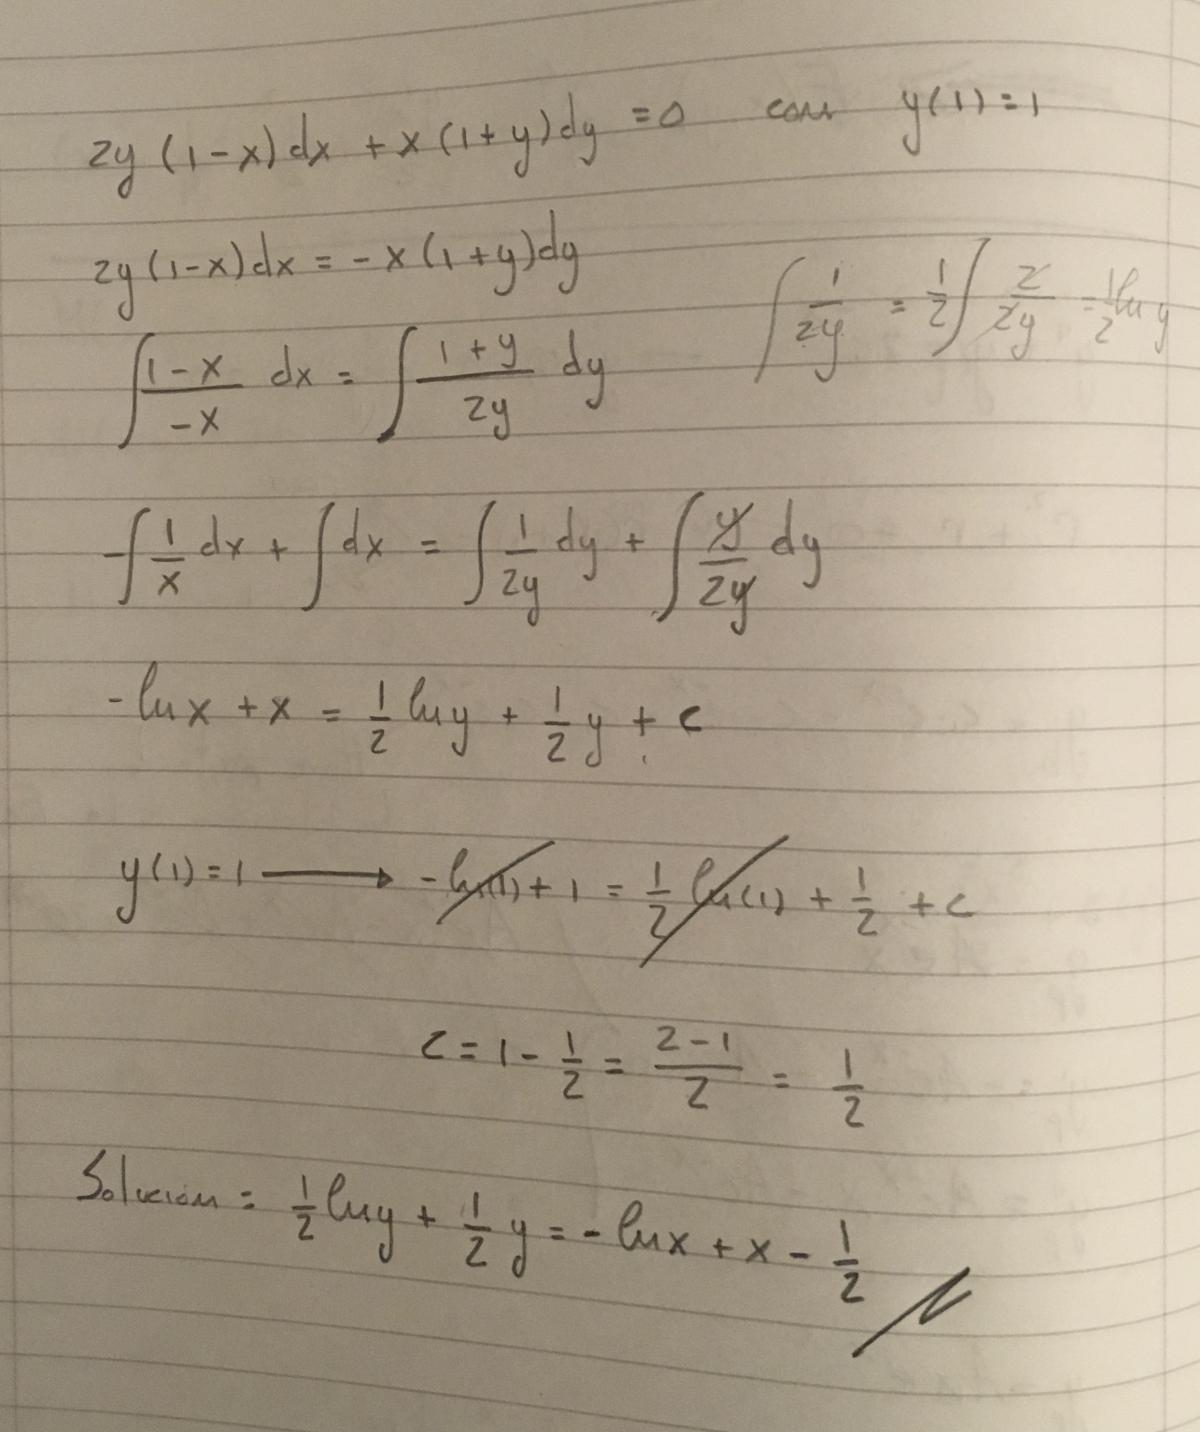 2y (1-x) dx + x (1+y) dy = 0 con y(1) = 1
2y (1-x) dx = - x (1+y) dy
∫ (1-x)/(-x) dx = ∫ (1+y)/(2y) dy
∫ 1/(2y) = 1/2 ∫ 2/(2y) = 1/2 ln y
-∫ 1/x dx + ∫ dx = ∫ 1/(2y) dy + ∫ y/(2y) dy
- ln x + x = 1/2 ln y + 1/2 y + c
y(1) = 1 ⟶ - ln(1) + 1 = 1/2 ln(1) + 1/2 + c
c = 1 - 1/2 = (2-1)/2 = 1/2
Solución = 1/2 ln y + 1/2 y = - ln x + x - 1/2